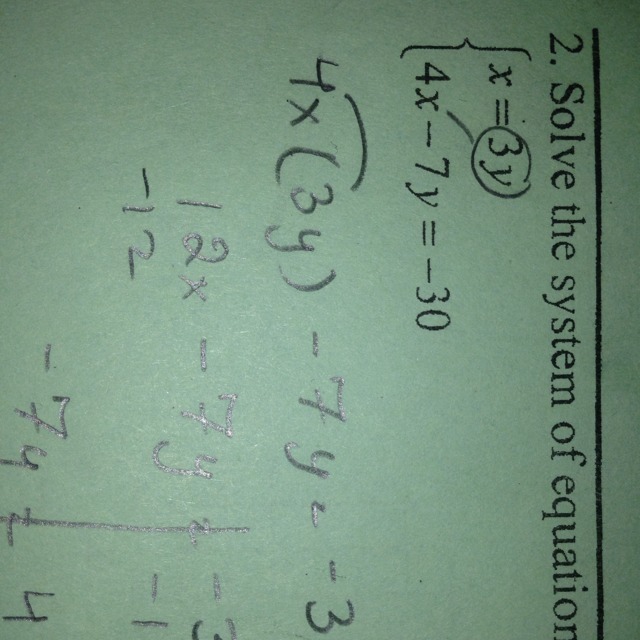 2. Solve the system of equation
x = 3y
4x - 7y = -30
4x(3y) - 7y = -3
12x - 7y = -3
-12 -1
-7y = 4